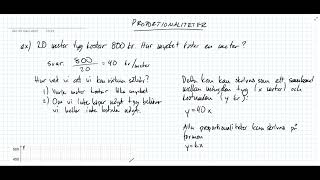 PROPORTIONALITETER
ex) 20 meter tyg kostar 800 kr. Hur mycket kostar en meter?
svar: 800/20 = 40 kr/meter
Hur vet vi att vi kan räkna såhär?
1) Varje meter kostar lika mycket
2) Om vi inte köper något tyg behöver
vi heller inte betala något.
Detta kan kan skrivas som ett samband
mellan mängden tyg (x meter) och
kostnaden (y kr):
y=40x
Alla proportionaliteter kan skrivas på
formen
y=kx
500
450
y